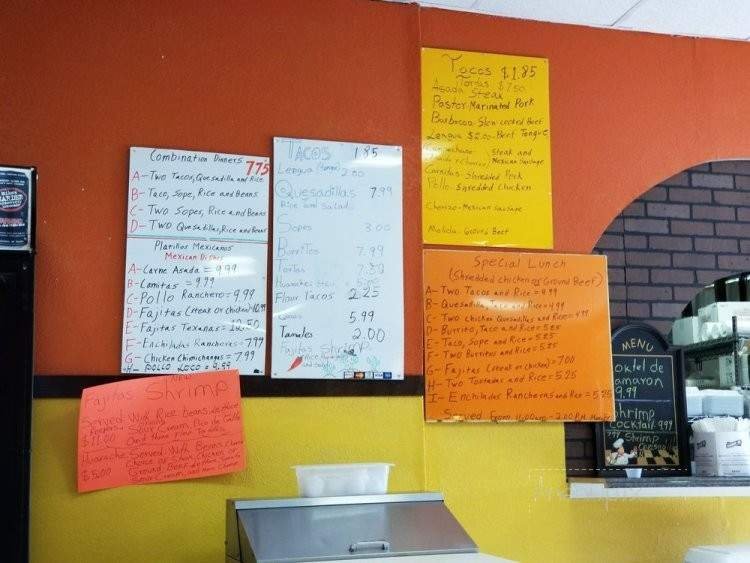 Combination Dinners 775
A- Two Tacos, Quesadilla and Rice
B- Taco, Sope, Rice and Beans
C- Two Sopes, Rice and Beans
D- Two Quesadillas, Rice and Beans
Platillos Mexicanos
Mexican Dishes
A- Carne Asada = 9.99
B- Carnitas = 9.99
C- Pollo Ranchero = 9.99
D- Fajitas (Steak or Chicken) 10.99
E- Fajitas Texanas = 10.50
F- Enchiladas Rancheras = 7.99
G- Chicken Chimichangas = 7.99
H- Pollo Loco = 9.99
TACOS 1.85
Lengua 2.00
Quesadillas 7.99
Rice and Salad
Sopes 3.00
Burritos 7.99
Tortas 7.50
Huaraches
Flour Tacos 2.25
5.99
Tamales 2.00
Fajitas Shrimp
Tacos $1.85
Tortas $7.50
Asada Steak
Pastor Marinated Pork
Barbacoa- Slow cooked Beef
Lengua $2.00- Beef Tongue
Steak and
Mexican Sausage
Carnitas- Shredded Pork
Pollo- Shredded Chicken
Chorizo- Mexican Sausage
Molida- Ground Beef
Special Lunch
(Shredded Chicken or Ground Beef)
A- Two Tacos and Rice = 4.99
B- Quesadilla, Taco and Rice = 4.99
C- Two Chicken Quesadillas and Rice = 4.99
D- Burrito, Taco and Rice = 5.25
E- Taco, Sope and Rice = 5.25
F- Two Burritos and Rice = 5.25
G- Fajitas (Steak or chicken) = 7.00
H- Two Tostadas and Rice = 5.25
I- Enchiladas Rancheras and Rice = 5.25
Served From 11:00am - 2:00 P.M.
Fajitas Shrimp
Served With Rice, beans, lettuce
Sour Cream, Pico de Gallo
$11.00 And Hand Flour Tortillas
Huarache Served With Beans
Choice of Steak, Chicken or
$5.00 Ground Beef, lettuce
Sour Cream and
MENU
Koktel de
Camaron
9.99
Shrimp
Cocktail 9.99
Shrimp